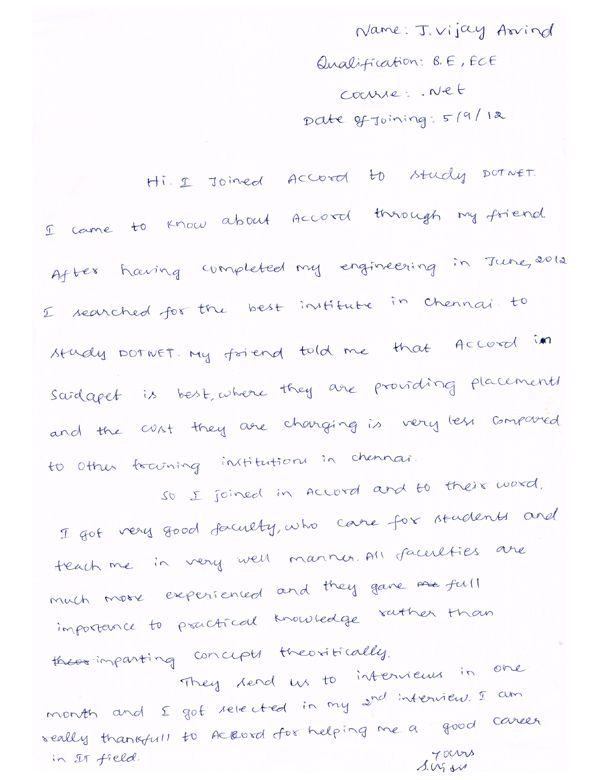 Name: J. Vijay Arvind
Qualification: B.E, ECE
Course: .Net
Date of Joining: 5/9/12
Hi. I Joined Accord to study DOTNET.
I came to know about Accord through my friend
After having completed my engineering in June, 2012
I searched for the best institute in Chennai. to
study DOTNET. My friend told me that Accord in
Saidapet is best, where they are providing placements
and the cost they are charging is very less compared
to other training institutions in Chennai.
So I joined in Accord and to their word,
I got very good faculty, who care for students and
teach me in very well manner. All faculties are
much more experienced and they gave me full
importance to practical knowledge rather than
imparting concepts theoritically.
They send us to interviews in one
month and I got selected in my 2nd interview. I am
really thankfull to Accord for helping me a good career
in IT field.
Yours